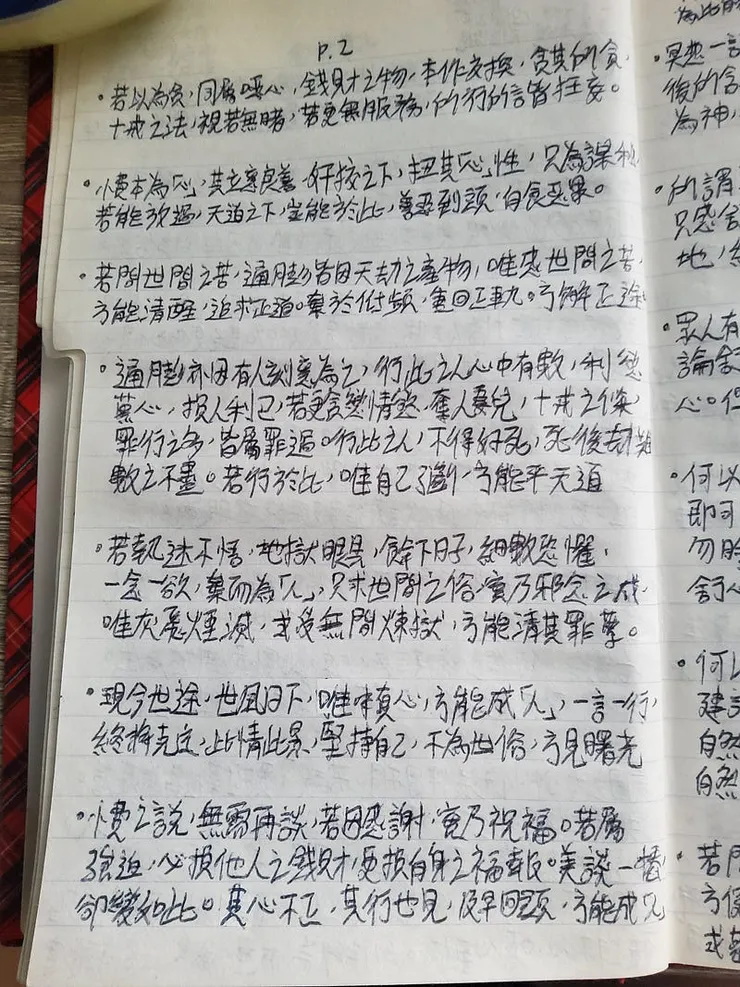 P.2
•若以為貪,同屬噁心,錢財之物,本作交換,貪其的貪,
十戒之法,視若無睹,若更無服務,所行的信皆枉妄。
•憒本為「心」,其立意良善,奸狡之下,扭其「心」性,只為謀私
若能放過,天道之下,豈能於此,善惡到頭,自食惡果。
•若問世間之苦,通膨皆因天劫之產物,唯感世間之苦,
方能清醒,追求正道。棄於低頻,重回正軌。方解正途
•通膨亦因有人刻意為之,行此之人心中有數,利慾
薰心,損人利己,若更含戀情慾,奪人妻兒,十戒之條
罪行之多,皆屬罪過。行此之人,不得好死,死後劫難
數之不盡。若行於此,唯自己了斷,方能平天道
•若執迷不悟,地獄眼見,餘下日子,細數恐懼,
一念一欲,棄而為「人」,只求世間之俗,實乃邪念之成,
唯灰飛煙滅,或受無間煉獄,方能清其罪孽。
•現今世途,世風日下,唯本真心,方能成「人」,一言一行,
終將克定,此情此景,堅持自己,不為世俗,方見曙光
之說,無需再談,若因感謝,實乃祝福。若屬
強迫,必損他人之錢財,更損自身之福報。美談一樁
卻變如此。其心不正,其行也見,及早回頭,方能成
P
為此
•冥想一言
後的含
為神,
•所謂
只感
地,
•眾人有
論
心。但
•何以
即可
勿
舍心
•何以
建設
自然
自然
•若
方
或